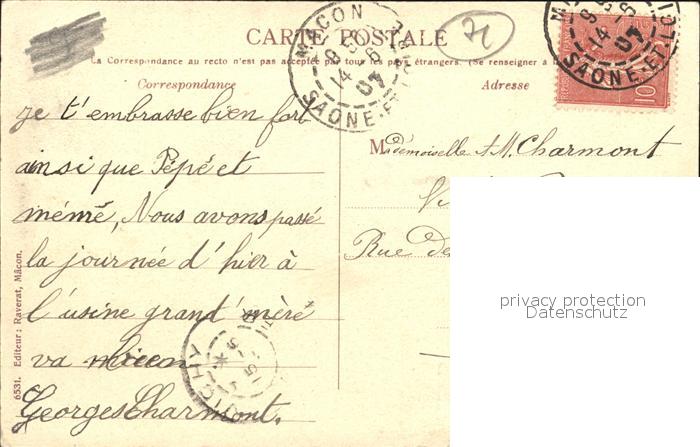 CARTE POSTALE
La Correspondance au recto n'est pas acceptée par tous les pays étrangers. (Se renseigner à
Correspondance
Adresse
MACON
14-6
07
SAONE-ET-LOIRE
MACON
14-6
07
SAONE-ET-LOIRE
10
71
je t'embrasse bien fort
ainsi que Pépé et
mémé, Nous avons passé
la journée d'hier à
l'usine grand'mère
va
Georges Charmont.
Mademoiselle A.M. Charmont
Rue de
VICHY
15-6
6531. Editeur : Raverat, Mâcon.
privacy protection
Datenschutz